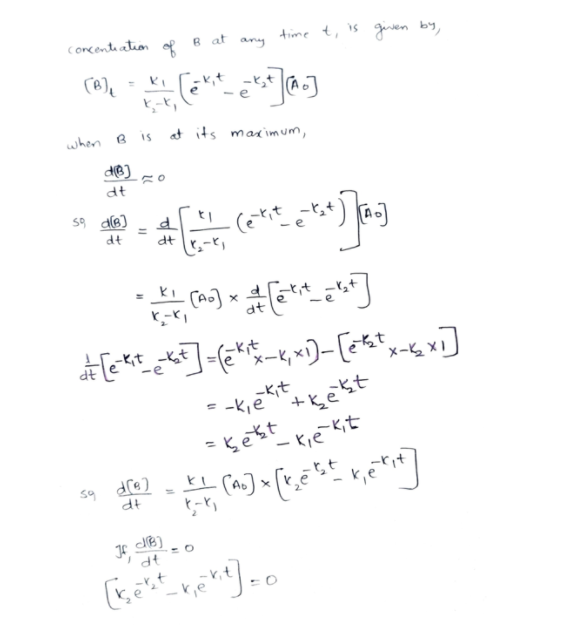 concentration of B at any time t, is given by,
[B]t = K1/(K2-K1) [e^-K1t - e^-K2t][A0]
when B is at its maximum,
d[B]/dt ≈ 0
so d[B]/dt = d/dt [K1/(K2-K1) (e^-K1t - e^-K2t)][A0]
= K1/(K2-K1) [A0] × d/dt [e^-K1t - e^-K2t]
1/dt [e^-K1t - e^-K2t] = (e^-K1t × -K1 × 1) - [e^-K2t × -K2 × 1]
= -K1e^-K1t + K2e^-K2t
= K2e^-K2t - K1e^-K1t
so d[B]/dt = K1/(K2-K1) [A0] × [K2e^-K2t - K1e^-K1t]
If, d[B]/dt = 0
[K2e^-K2t - K1e^-K1t] = 0